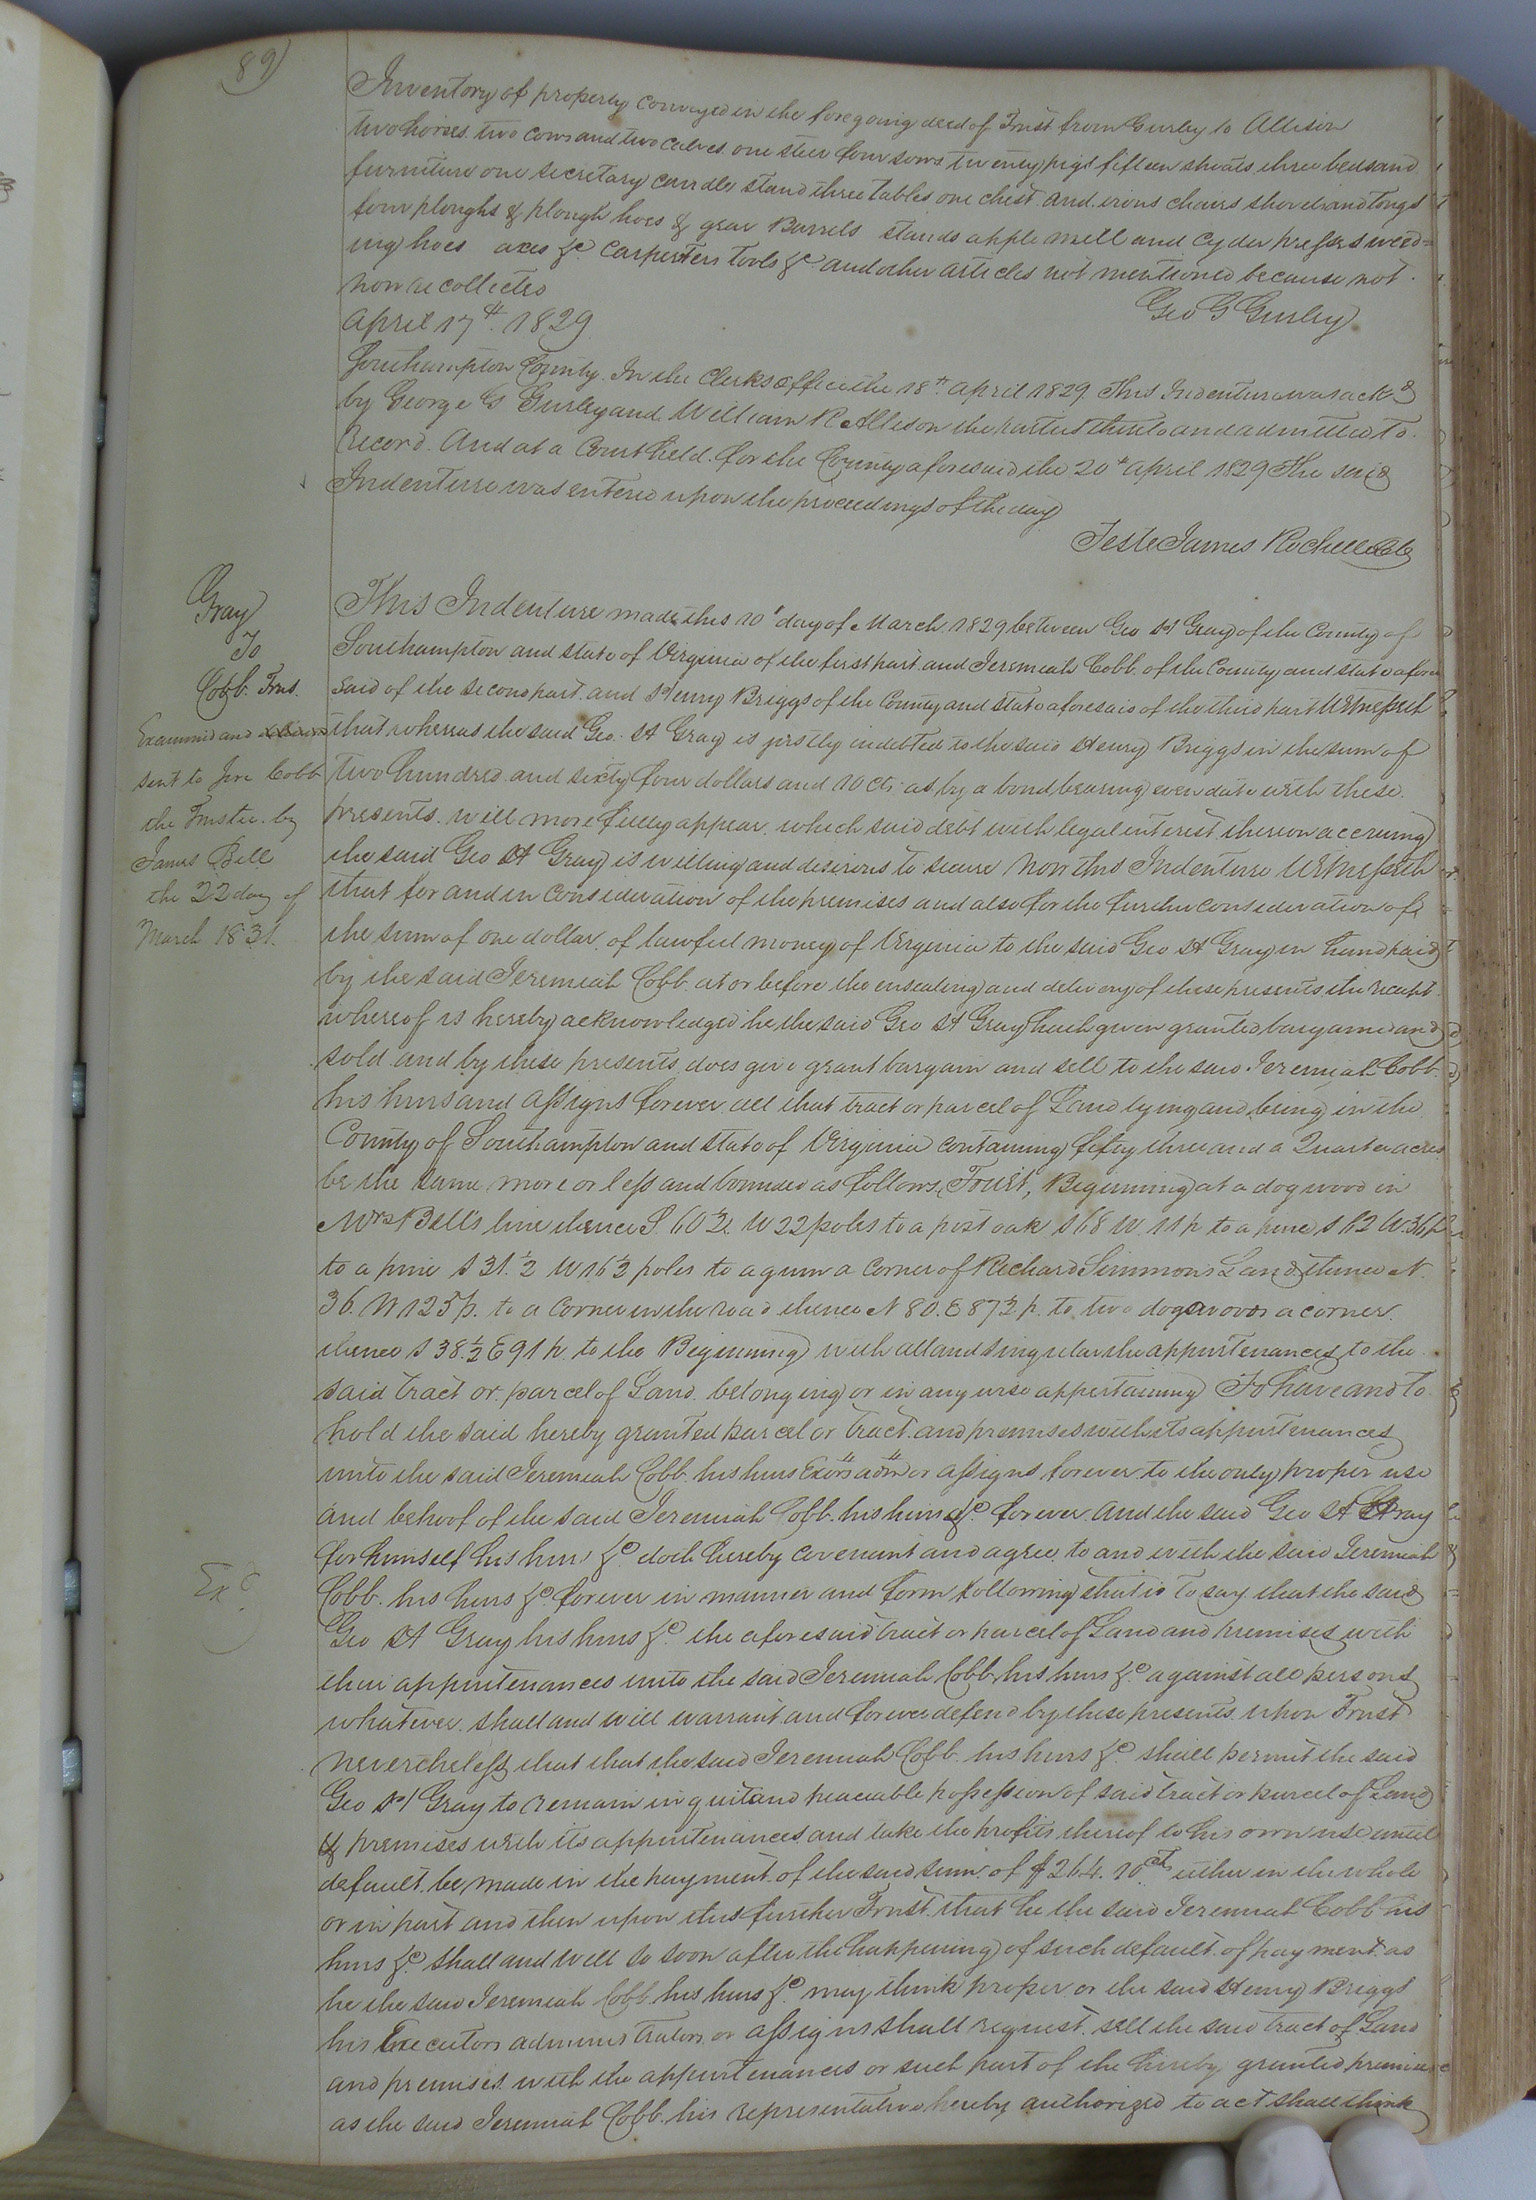 89
Inventory of property conveyed in the foregoing deed of Trust from Gurley to Allison
two horses two cows and two calves one steer four sows twenty pigs fifteen shoats three beds and
furniture one secretary candle stand three tables one chest And irons chairs shovel and tongs
four ploughs & plough hoes & gear Barrels stands apple mill and Cyder press weed=
ing hoes axes &c Carpenters Tools &c and other articles not mentioned because not
now recollected
April 17th 1829 Geo G Gurley
Southampton County. In the Clerks office the 18th April 1829 This Indenture was ackd
by George G Gurley and William R Allison the parties thereto and admitted to
Record. And at a Court held for the County aforesaid the 20th April 1829 The said
Indenture was entered upon the proceedings of the day
Teste James Rochelle Clk
Gray
To
Cobb Trus.
Examined and
sent to Jere Cobb
the Trustee by
James Bell
the 22 day of
March 1831.
This Indenture made this 10th day of March 1829 between Geo H Gray of the County of
Southampton and state of Virginia of the first part and Jeremiah Cobb of the County and state afore
said of the second part and Henry Briggs of the County and state aforesaid of the third part Witnesseth
that whereas the said Geo. H Gray is justly indebted to the said Henry Briggs in the sum of
two hundred and sixty four dollars and 10 cts as by a bond bearing even date with these
presents will more fully appear which said debt with legal interest thereon accruing
the said Geo H Gray is willing and desirous to secure Now this Indenture Witnesseth
that for and in Consideration of the premises and also for the further consideration of
the sum of one dollar of lawful money of Virginia to the said Geo H Gray in hand paid
by the said Jeremiah Cobb at or before the ensealing and delivery of these presents the receipt
whereof is hereby acknowledged he the said Geo H Gray hath given granted bargained and
sold and by these presents does give grant bargain and sell to the said Jeremiah Cobb
his heirs and assigns forever all that tract or parcel of Land lying and being in the
County of Southampton and state of Virginia containing fifty three and a Quarter acres
be the same more or less and bounded as follows, Towit, Beginning at a dogwood in
Mrs Bell's line thence S. 60½ W 22 poles to a post oak S 68 W. 11 p to a pine S 62 W. 36 p
to a pine S 31.½ W 16½ poles to a gum a corner of Richard Simmons Land thence N.
36. W 125 p. to a corner in the road thence N 80. E 87½ p. to two dogwoods a corner
thence S 38.½ E 91 p to the Beginning with all and singular the appurtenances to the
said tract or parcel of Land belonging or in any wise appertaining To have and to
hold the said hereby granted parcel or tract and premises with its appurtenances
unto the said Jeremiah Cobb his heirs Exors adms or assigns forever to the only proper use
and behoof of the said Jeremiah Cobb his heirs &c forever And the said Geo H Gray
for himself his heirs &c doth hereby covenant and agree to and with the said Jeremiah
Cobb his heirs &c forever in manner and form following that is to say that the said
Exc
Geo H Gray his heirs &c the aforesaid tract or parcel of Land and premises with
their appurtenances unto the said Jeremiah Cobb his heirs &c against all persons
whatever shall and will warrant and forever defend by these presents upon Trust
nevertheless that that the said Jeremiah Cobb his heirs &c shall permit the said
Geo H Gray to remain in quit and peaceable possession of said tract or parcel of Land
& premises with its appurtenances and take the profits thereof to his own use until
default be made in the payment of the said sum of $264.10cts either in the whole
or in part and then upon this further Trust that he the said Jeremiah Cobb his
heirs &c shall and will so soon after the happening of such default of payment as
he the said Jeremiah Cobb his heirs &c may think proper or the said Henry Briggs
his Executors administrators or assigns shall request sell the said tract of Land
and premises with the appurtenances or such part of the hereby granted premises
as the said Jeremiah Cobb his representatives hereby authorized to act shall think